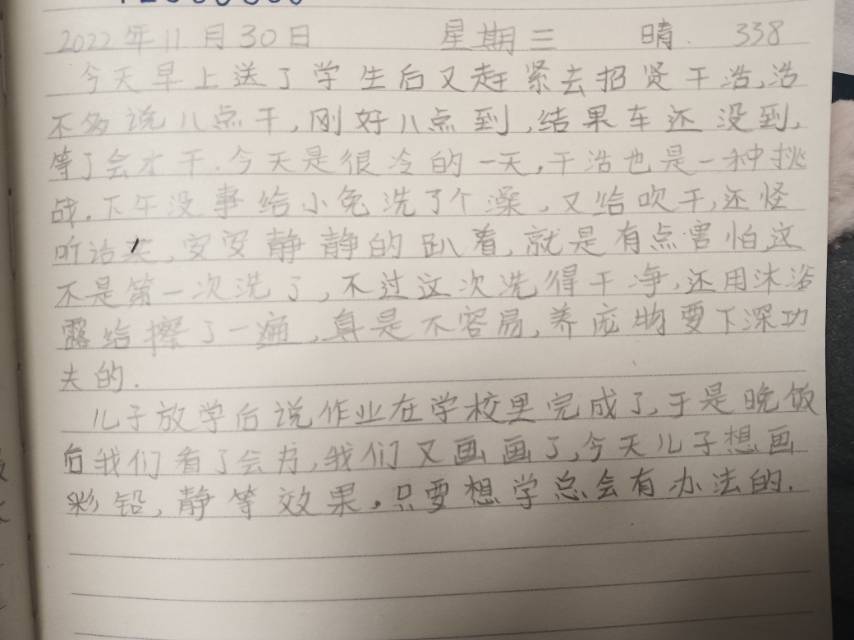 2022年11月30日 星期三 晴. 338
今天早上送了学生后又赶紧去招贤干浩,浩
不多说八点干,刚好八点到,结果车还没到,
等了会才干.今天是很冷的一天,干浩也是一种挑
战.下午没事给小兔洗了个澡,又给吹干,还怪
听话,安安静静的趴着,就是有点害怕,这
不是第一次洗了,不过这次洗得干净,还用沐浴
露给擦了一遍,真是不容易,养宠物要下深功
夫的.
儿子放学后说作业在学校里完成了,于是晚饭
后我们看了会书,我们又画画了,今天儿子想画
彩铅,静等效果,只要想学总会有办法的.